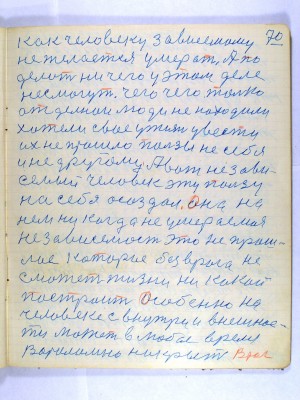 70
как человеку зависемому
не желается умерат, А по
делат ни чего у этом деле
несмогут. чего чего толко
от делной люди не находили
хотели свае увести
их не прошло ползы не себя
и не другому, А вот незави-
семый человек эту ползу
на себя осоздал, она на
нем ни когда не умераемая
независемост это не прош-
лае которые без врага не
сможет жизни ни какой
построит Особенно на
человеке с внутри и внешнос-
ти может в любое время
накрыт Враг